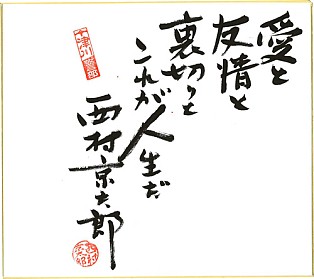 愛と
友情と
裏切りと
これが人生だ
西村京太郎
十津川警部